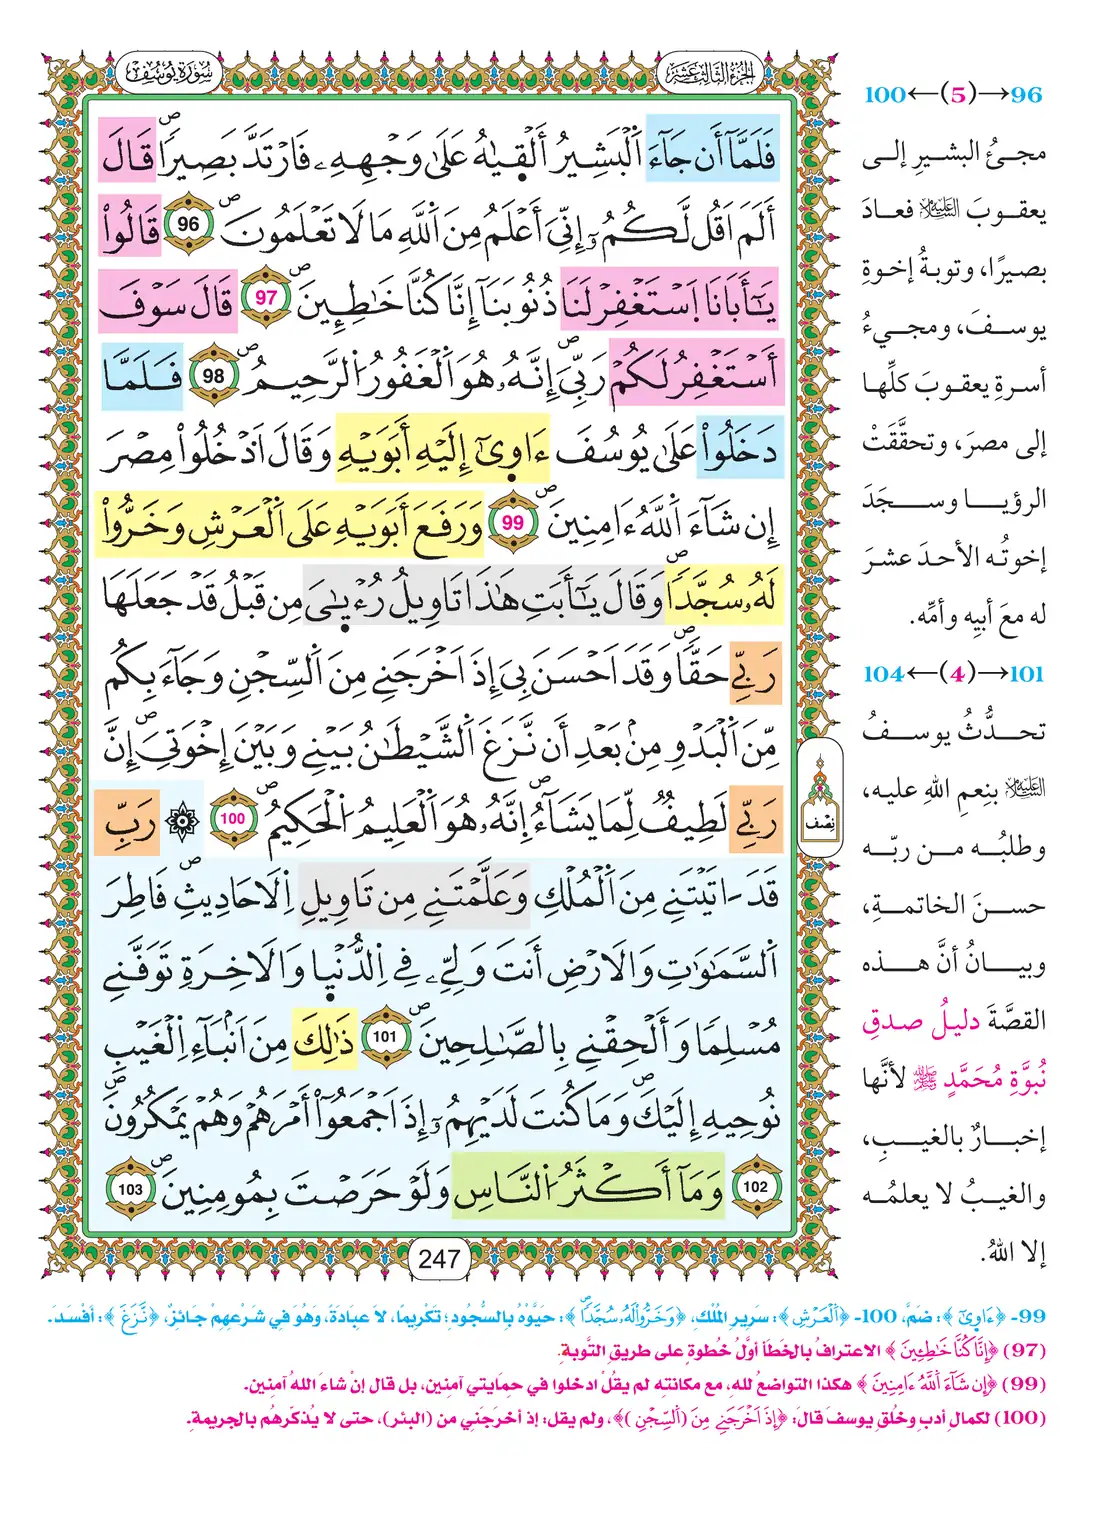 سُورَةُ يُوسُفَ
الجُزْءُ الثَّالِثَ عَشَرَ
فَلَمَّآ أَن جَآءَ اَ۬لْبَشِيرُ أَلْق۪يٰهُ عَلَىٰ وَجْهِهِۦ فَارْتَدَّ بَصِيراٗۖ قَالَ
أَلَمَ اَقُل لَّكُمُۥٓ إِنِّيَ أَعْلَمُ مِنَ اَ۬للَّهِ مَا لَا تَعْلَمُونَۖ 96 قَالُواْ
يَٰٓأَبَانَا اَ۪سْتَغْفِرْ لَنَا ذُنُوبَنَآ إِنَّا كُنَّا خَٰطِـِٕينَۖ 97 قَالَ سَوْفَ
أَسْتَغْفِرُ لَكُمْ رَبِّيَۖ إِنَّهُۥ هُوَ اَ۬لْغَفُورُ اُ۬لرَّحِيمُۖ 98 فَلَمَّا
دَخَلُواْ عَلَىٰ يُوسُفَ ءَاو۪ىٰٓ إِلَيْهِ أَبَوَيْهِ وَقَالَ اَ۟دْخُلُواْ مِصْرَ
إِن شَآءَ اَ۬للَّهُ ءَامِنِينَۖ 99 وَرَفَعَ أَبَوَيْهِ عَلَى اَ۬لْعَرْشِ وَخَرُّواْ
لَهُۥ سُجَّداٗۖ وَقَالَ يَٰٓأَبَتِ هَٰذَا تَاوِيلُ رُءْيٰ۪يَ مِن قَبْلُ قَدْ جَعَلَهَا
رَبِّے حَقّاٗۖ وَقَدَ اَحْسَنَ بِيَ إِذَ اَخْرَجَنِے مِنَ اَ۬لسِّجْنِ وَجَآءَ بِكُم
مِّنَ اَ۬لْبَدْوِ مِنۢ بَعْدِ أَن نَّزَغَ اَ۬لشَّيْطَٰنُ بَيْنِے وَبَيْنَ إِخْوَتِيَۖ إِنَّ
رَبِّے لَطِيفٞ لِّمَا يَشَآءُۖ إِنَّهُۥ هُوَ اَ۬لْعَلِيمُ اُ۬لْحَكِيمُۖ 100 ۞ رَبِّ
قَدَ اٰتَيْتَنِے مِنَ اَ۬لْمُلْكِ وَعَلَّمْتَنِے مِن تَاوِيلِ اِ۬لَاحَادِيثِۖ فَاطِرَ
اَ۬لسَّمَٰوَٰتِ وَالَارْضِ أَنتَ وَلِيِّۦ فِے اِ۬لدُّنْي۪ا وَالَاخِرَةِ تَوَفَّنِے
مُسْلِماٗ وَأَلْحِقْنِے بِالصَّٰلِحِينَۖ 101 ذَٰلِكَ مِنَ اَنۢبَآءِ اِ۬لْغَيْبِ
نُوحِيهِ إِلَيْكَۖ وَمَا كُنتَ لَدَيْهِمُۥٓ إِذَ اَجْمَعُوٓاْ أَمْرَهُمْ وَهُمْ يَمْكُرُونَۖ
102 وَمَآ أَكْثَرُ اُ۬لنَّاسِ وَلَوْ حَرَصْتَ بِمُومِنِينَۖ 103
نِصْف
247
96→(5)←100
مجيءُ البشيرِ إلى
يعقوبَ عليه السلام فعادَ
بصيرًا، وتوبةُ إخوةِ
يوسفَ، ومجيءُ
أسرةِ يعقوبَ كلِّها
إلى مصرَ، وتحقَّقَتْ
الرؤيا وسجَدَ
إخوتُه الأحدَ عشرَ
له معَ أبيِه وأمِّه.
101→(4)←104
تحدُّثُ يوسفُ
عليه السلام بنِعمِ اللهِ عليه،
وطلبُه من ربِّه
حسنَ الخاتمةِ،
وبيانُ أنَّ هذه
القصَّةَ دليلُ صدقِ
نُبوَّةِ مُحَمَّدٍ ﷺ لأنَّها
إخبارٌ بالغيبِ،
والغيبُ لا يعلمُه
إلا اللهُ.
99- ﴿ءَاو۪ىٰٓ﴾: ضَمَّ، 100- ﴿اَ۬لْعَرْشِ﴾: سَرِيرِ المُلْكِ، ﴿وَخَرُّواْ لَهُۥ سُجَّداٗۖ﴾: حَيَّوْهُ بِالسُّجُودِ؛ تَكْرِيمًا، لَا عِبَادَةً، وَهُوَ فِي شَرْعِهِمْ جَائِزٌ، ﴿نَّزَغَ﴾: أَفْسَدَ.
(97) ﴿إِنَّا كُنَّا خَٰطِـِٕينَ﴾ الاعترافُ بالخَطَأِ أوَّلُ خُطوةٍ على طريقِ التَّوبةِ.
(99) ﴿إِن شَآءَ اَ۬للَّهُ ءَامِنِينَ﴾ هكذا التواضعُ للهِ، مع مكانتِه لم يقلْ ادخلوا في حمايتي آمنين، بل قال إنْ شاءَ اللهُ آمنين.
(100) لكمالِ أدبِ وخُلقِ يوسفَ قالَ: ﴿إِذَ اَخْرَجَنِے مِنَ (اَ۬لسِّجْنِ)﴾، ولم يقل: إذ أخرَجَني من (البئر)، حتى لا يُذكّرهُم بالجريمةِ.